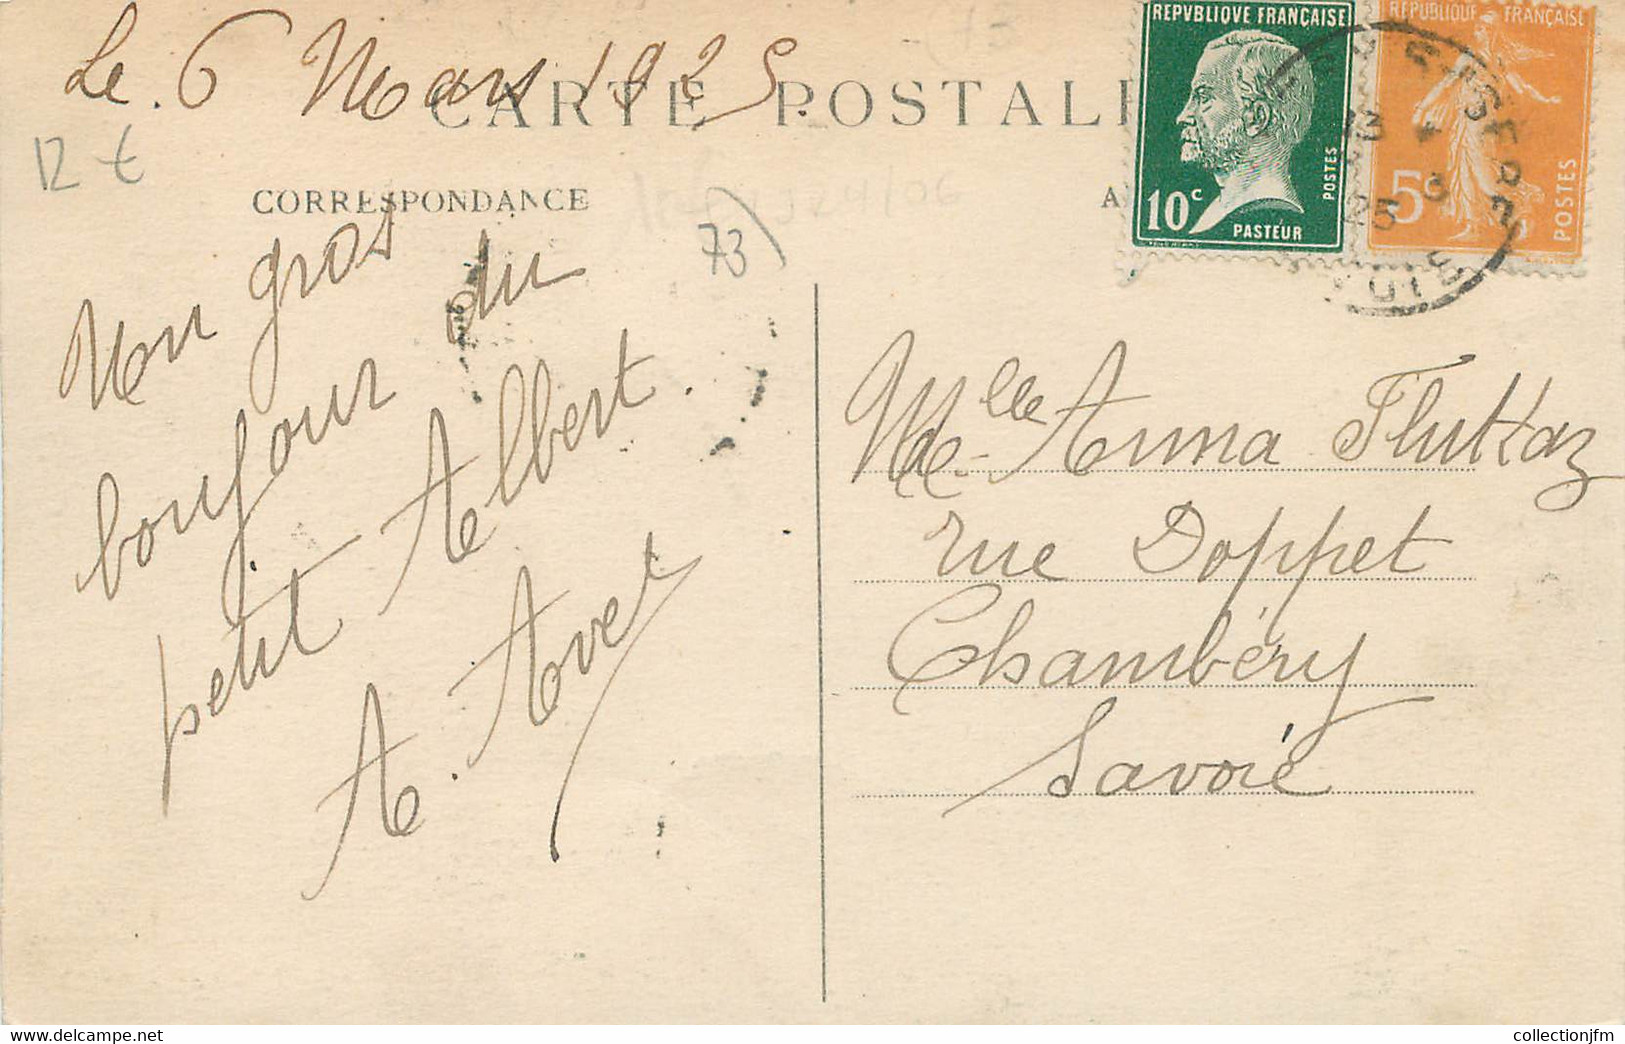 Le. 6 Mars 1925.
CARTE POSTALE
12 €
CORRESPONDANCE
73
Un gros
bonjour du
petit Albert.
A. Avet
REPVBLIQVE FRANÇAISE
10c
PASTEUR
POSTES
REPUBLIQUE FRANÇAISE
5c
POSTES
13
25
SAVOIE
Mlle Anna Fluttaz
rue Doppet
Chambéry
Savoie
www.delcampe.net
collectionjfm